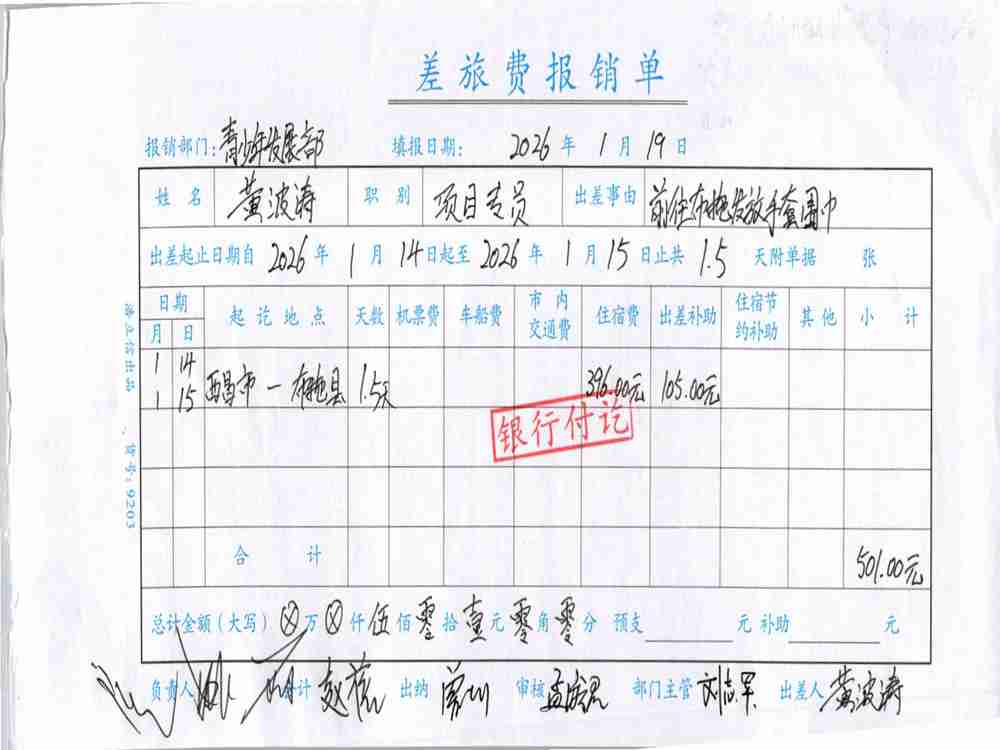 差旅费报销单
报销部门：青少年发展部 填报日期： 2026 年 1 月 19 日
姓名 黄波涛 职别 项目专员 出差事由 前往布拖发放手套围巾
出差起止日期自 2026 年 1 月 14 日起至 2026 年 1 月 15 日止共 1.5 天附单据 张
日期 起讫地点 天数 机票费 车船费 市内交通费 住宿费 出差补助 住宿节约补助 其他 小计
月 日
1 14
1 15 西昌市 — 布拖县 1.5天 396.00元 105.00元
银行付讫
合计 501.00元
总计金额（大写） ⊗ 万 ⊗ 仟 伍 佰 零 拾 壹 元 零 角 零 分 预支 元 补助 元
负责人 会计 出纳 审核 部门主管 刘志军 出差人 黄波涛
货号：9203